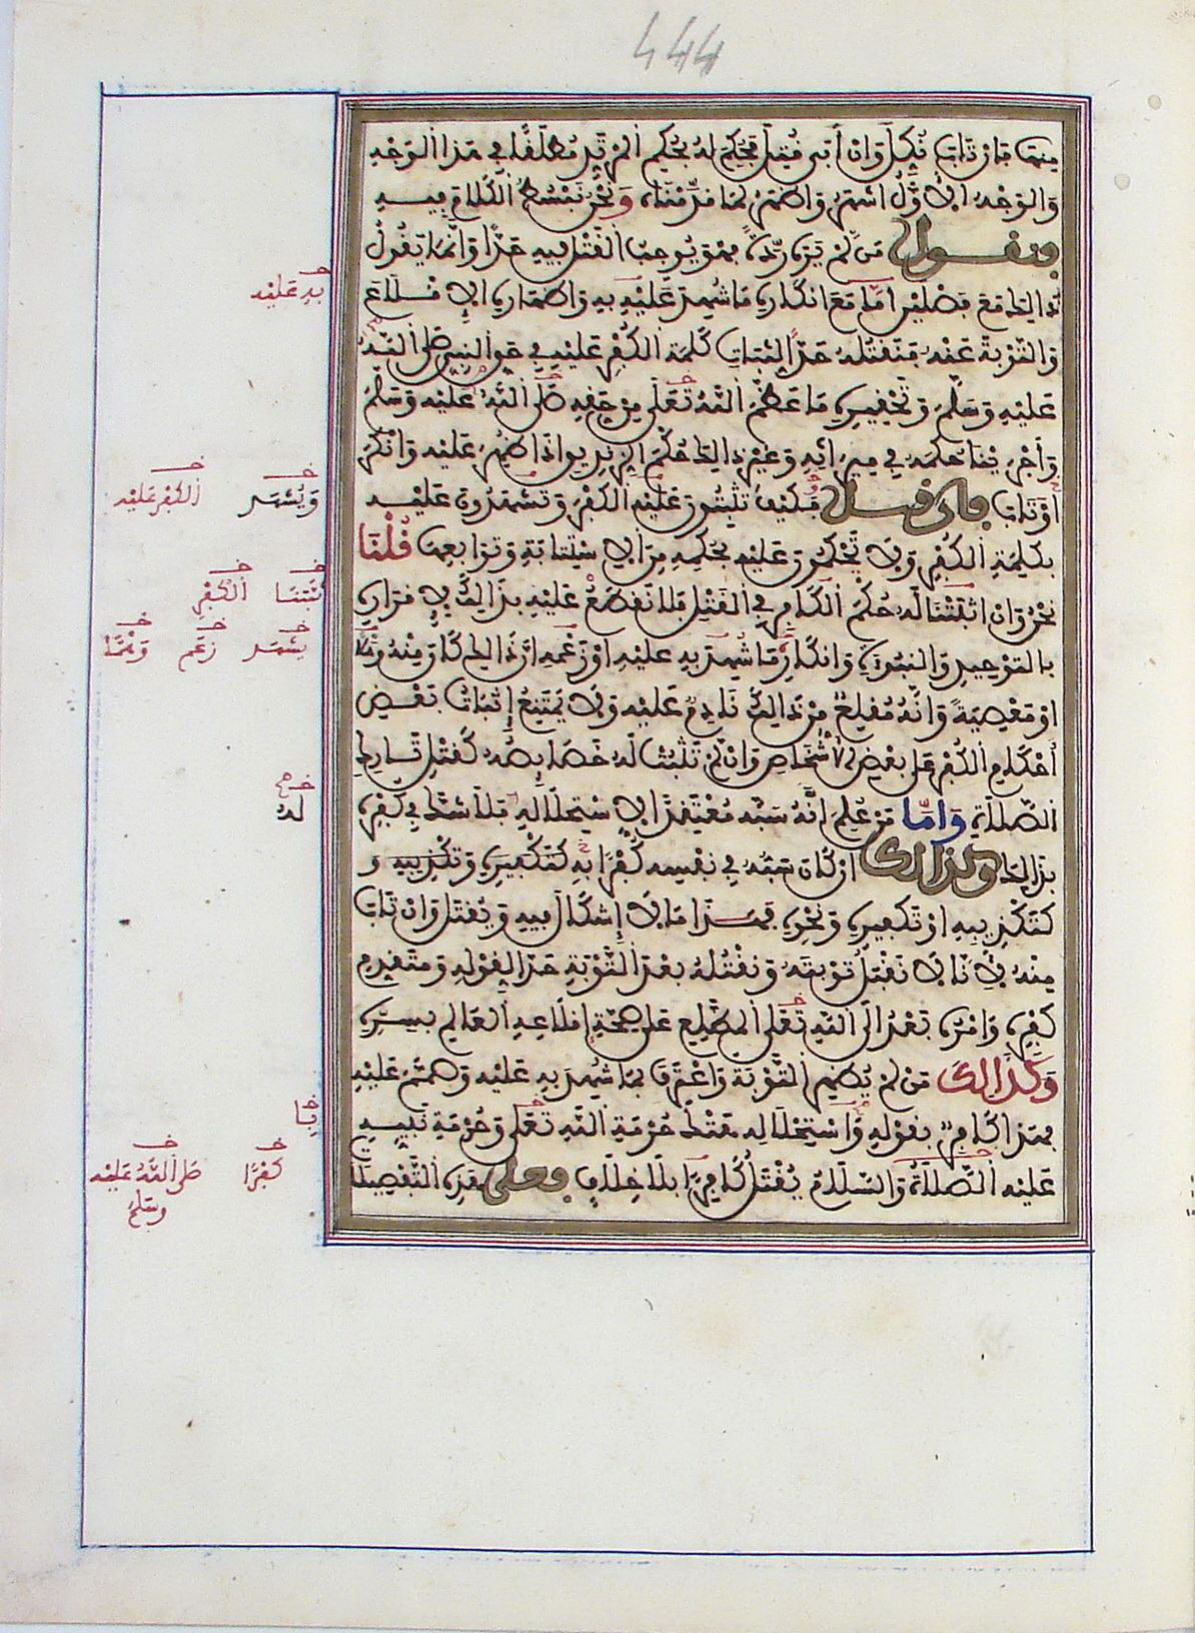 444
منها فإن تاب نكل وإن أبى قتل فحكم له بحكم المرتد مطلقا في هذا الوجه
والوجه الأول أشهر وأظهر لما قدمناه ونحن نبسط الكلام فيه
فنقول من لم يره ردة فهو يوجب القتل فيه حدا وإنما يقول
ذالك مع فصلين إما مع إنكاره ما شهد عليه به وإظهاره الإقلاع
والتوبة عنه فنقتله حدا لثبات كلمة الكفر عليه في حق النبي صلى الله
عليه وسلم وتحقيره ما عظم الله تعلى من حقه صلى الله عليه وسلم
وأجرينا حكمه في ميراثه وغير ذالك حكم الزنديق إذا ظهر عليه وأنكر
أو تاب فإن قيل فكيف تثبتون عليه الكفر وتشهدون عليه
بكلمة الكفر ولا تحكمون عليه بحكمه من الاستتابة وتوابعها قلنا
نحن وإن أثبتنا له حكم الكافر في القتل فلا نقطع عليه بذالك لإقراره
بالتوحيد والنبوة وإنكاره ما شهد به عليه أو زعمه أن ذالك كان منه وهلا
أو معصية وأنه مقلع من ذالك نادم عليه ولا يمتنع إثبات بعض
أحكام الكفر على بعض الأشخاص وإن لم تثبت له خصايصه كقتل تارك
الصلاة وأما من علم أنه سبه معتقدا لاستحلاله فلا شك في كفره
بذالك وكذالك إن كان سبه في نفسه كفرا به كتكفيره وتكذيبه و
كتكذيبه أو تكفيره ونحوه فهذا ما لا إشكال فيه ويقتل وإن تاب
منه لأنا لا نقبل توبته ونقتله بعد التوبة حدا لقوله ومتقدم
كفره وأمره بعد إلى الله تعلى المطلع على صحة إقلاعه العالم بسره
وكذالك من لم يظهر التوبة واعترف بما شهد به عليه وصمم عليه
فهذا كافر بقوله واستحلاله هتك حرمة الله تعلى وحرمة نبيه
عليه الصلاة والسلام يقتل كافرا بلا خلاف فعلى هذه التفصيلا
به عليه
ويشهد الكفر عليه
أثبتنا الكفر
بشهد زعم وهما
له
بما
كفرا صلى الله عليه
وسلم